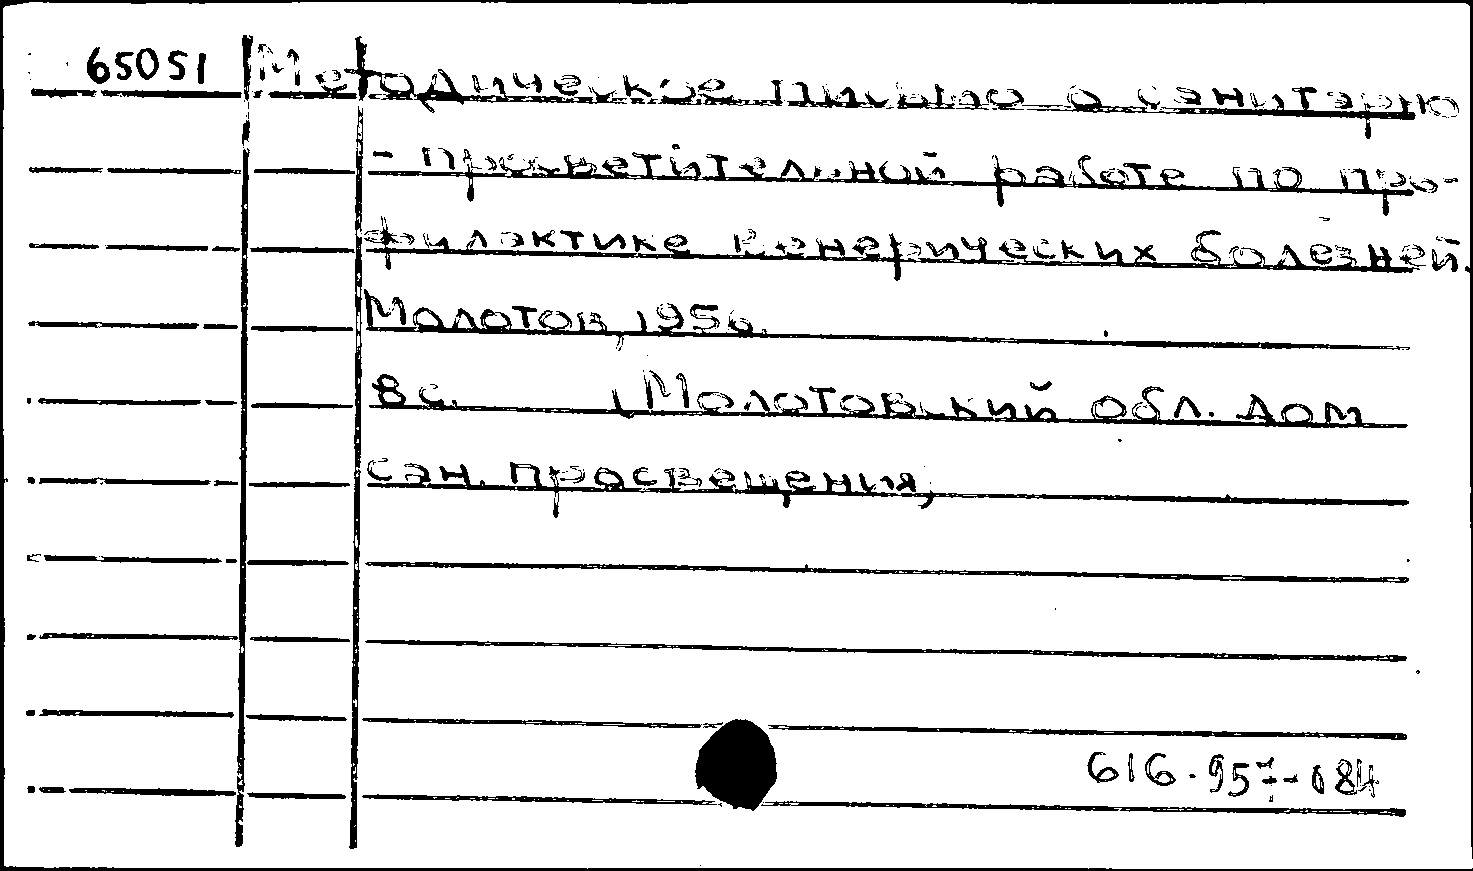 65051 Методическое письмо о санитарно
- просветительной работе по про-
филактике венерических болезней.
Молотов, 1956.
8 с. (Молотовский обл. дом
сан. просвещения,
616.957-084